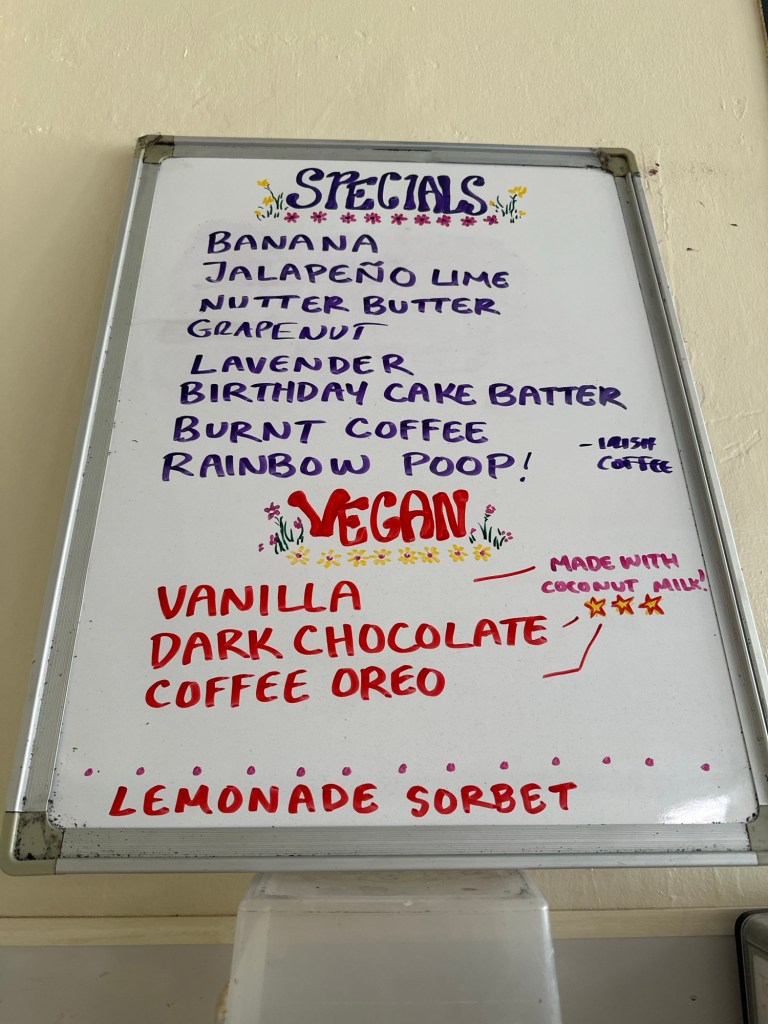 SPECIALS
BANANA
JALAPEÑO LIME
NUTTER BUTTER
GRAPENUT
LAVENDER
BIRTHDAY CAKE BATTER
BURNT COFFEE
RAINBOW POOP!
- IRISH
COFFEE
VEGAN
MADE WITH
COCONUT MILK!
VANILLA
DARK CHOCOLATE
COFFEE OREO
LEMONADE SORBET